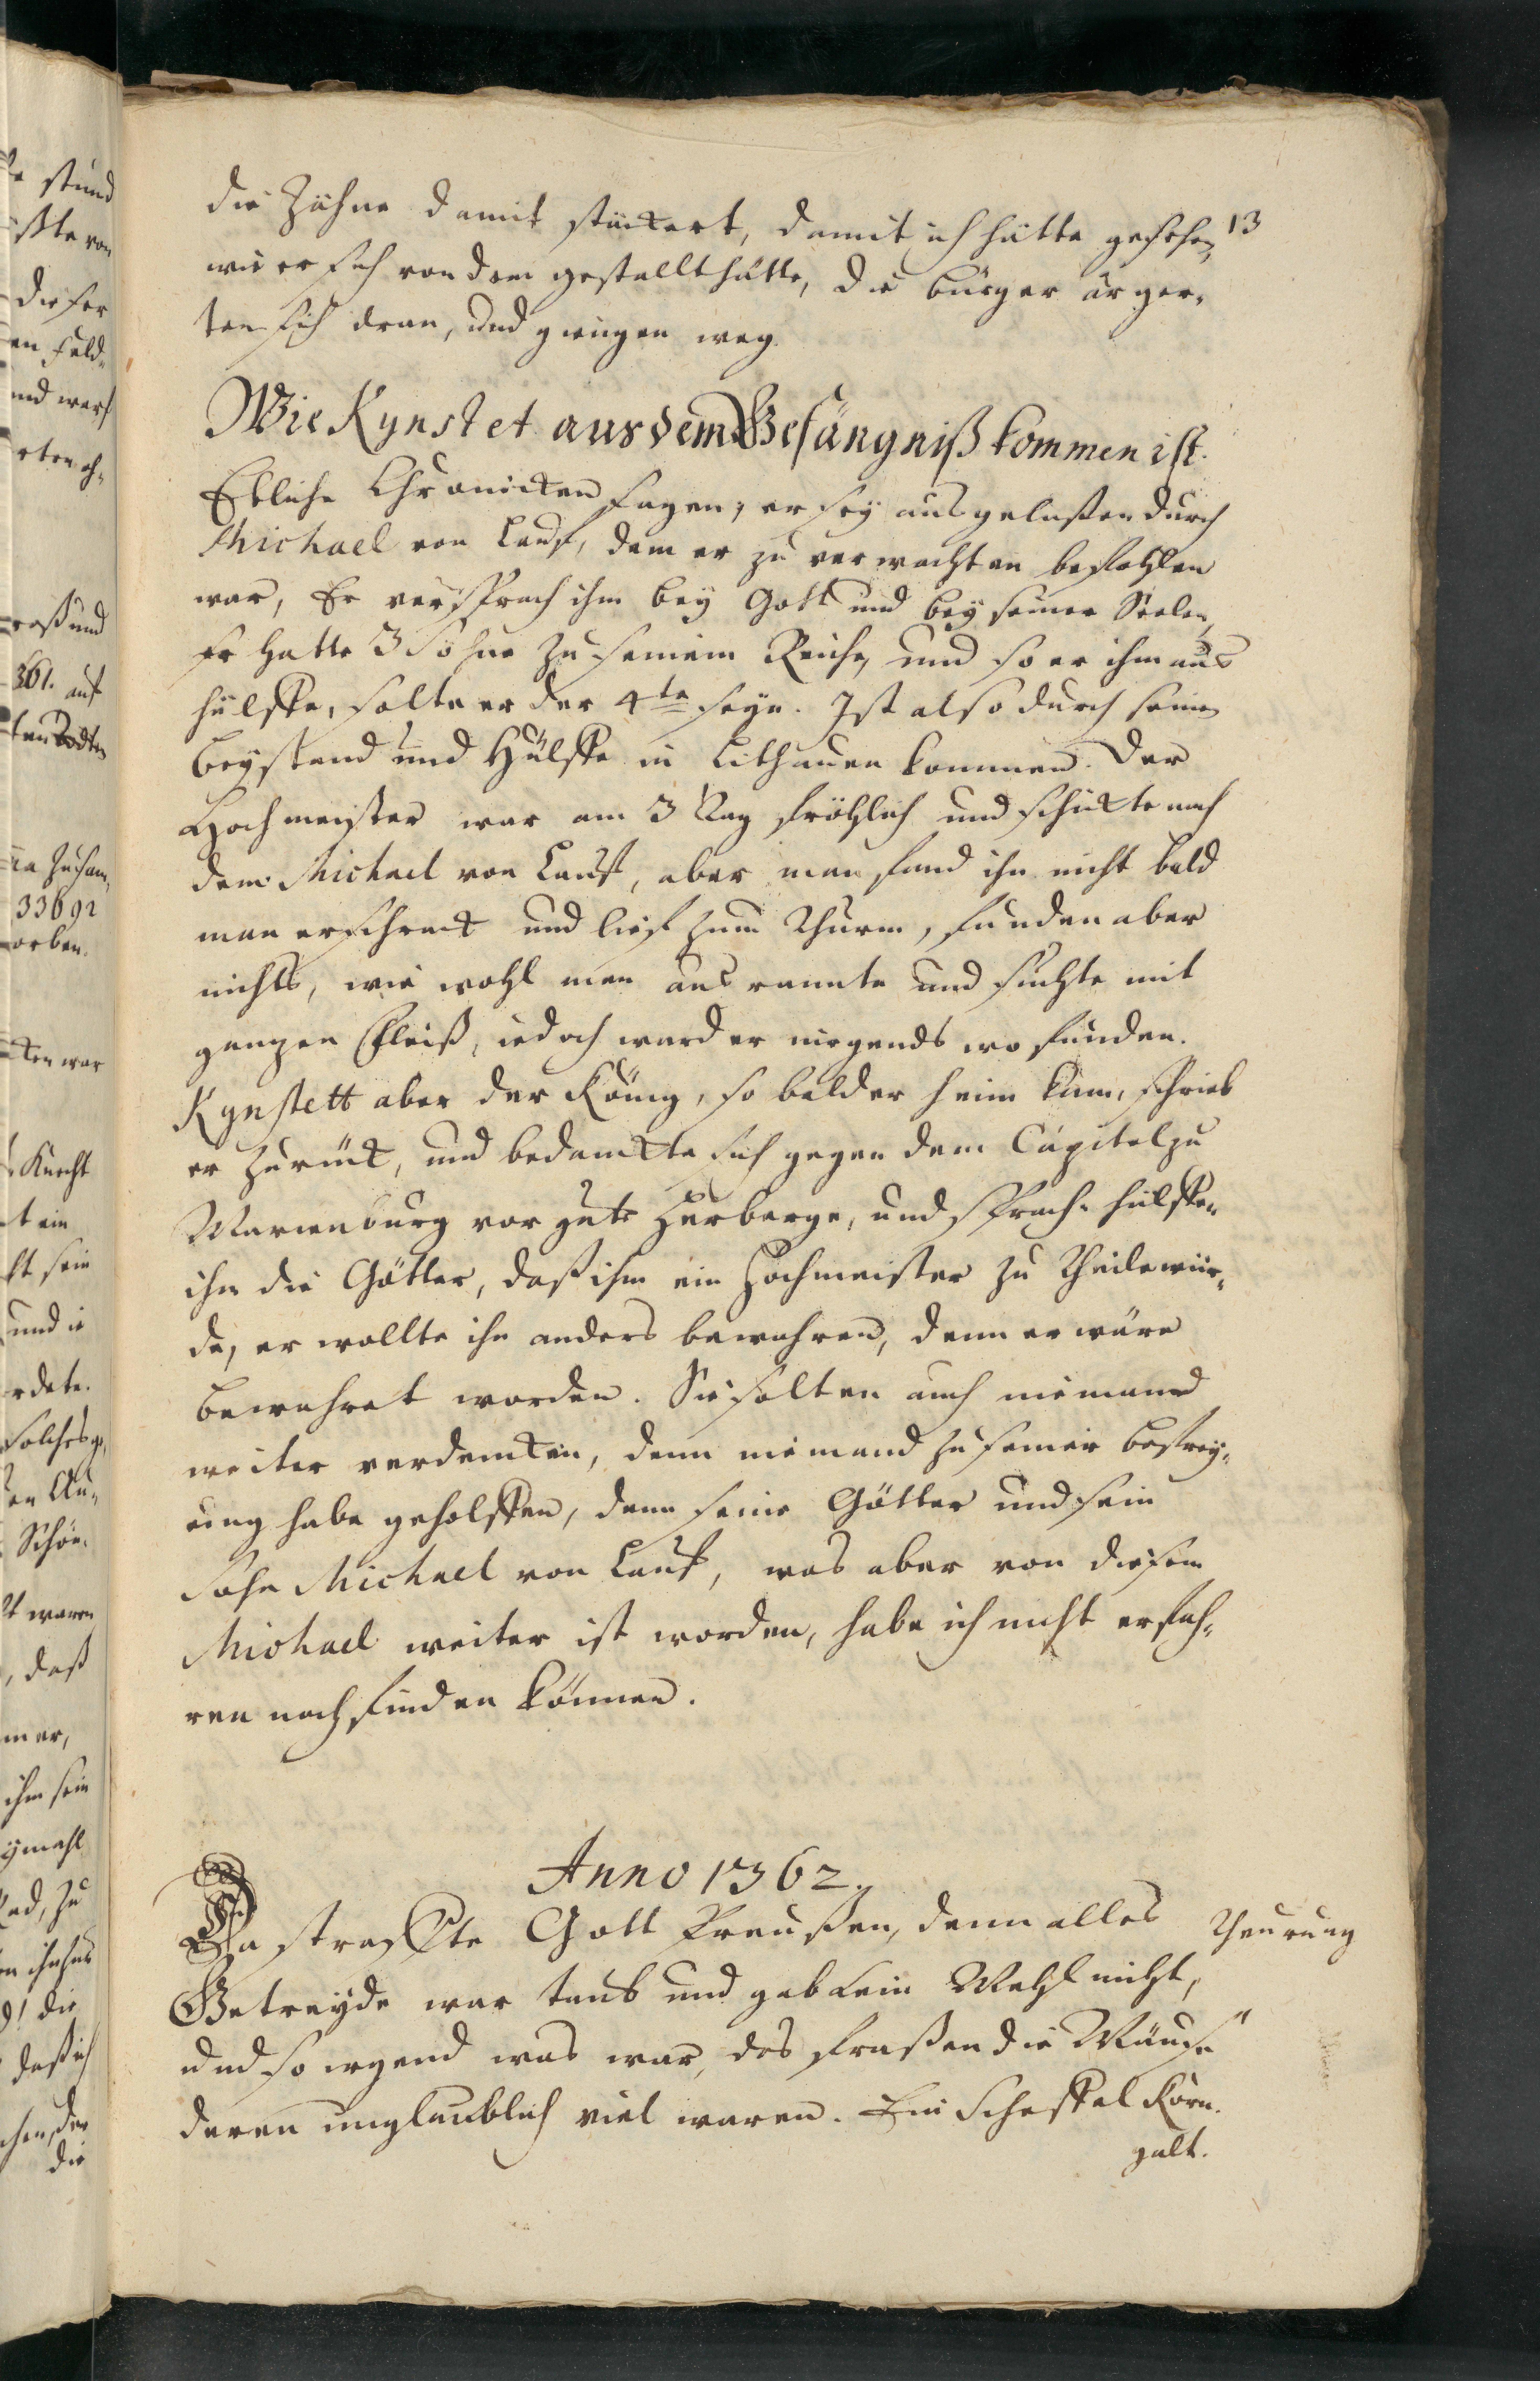 13
die Zähne damit stückert, damit ich hätte gesehen,
wie er sich von dem gestallt hätte, die Bürger ärger-
ten sich dran, und giengen weg.
Wie Kynstet aus dem Gefängniß kommen ist.
Etliche Chronicken sagen, er sey ausgelaßen durch
Michael von Lauf, dem er zu verwachten befohlen
war, Er versprach ihm bey Gott und bey seiner Seelen,
Er hatte 3 Söhne zu seinem Reiche, und so er ihm aus
hülffe, solte er der 4te seyn. Ist also durch seinen
Beystand und Hülffe in Lithauen kommen. Der
Hochmeister war am 3 Tag fröhlich und schickte nach
dem Michael von Lauf, aber man fand ihn nicht bald
man erschrack und lief zum Thurm, funden aber
nichts, wie wohl man aus rannte und suchte mit
gantzen Fleiß, iedoch ward er nirgends wo funden.
Kynstett aber der König, so bald er heim kam, schrieb
er zurück, und bedanckte sich gegen dem Capitel zu
Marienburg vor gute Herberge, und sprach: hülffen
ihm die Götter, daß ihm ein Hochmeister zu Theile wür-
de, er wollte ihn anders bewahren, denn er wäre
bewahret worden. Sie solten auch niemand
weiter verdencken, denn niemand zu seiner befrey-
ung habe geholffen, denn seine Götter und sein
Sohn Michael von Lauf, was aber von diesem
Michael weiter ist worden, habe ich nicht erfah-
ren noch finden können.
Anno 1362.
Da straffte Gott Preußen, denn alles
Theurung
Getreyde war taub und gab kein Mehl nicht,
und so irgend was war, das fraßen die Mäuse
deren unglaublich viel waren. Ein Scheffel Korn
galt.